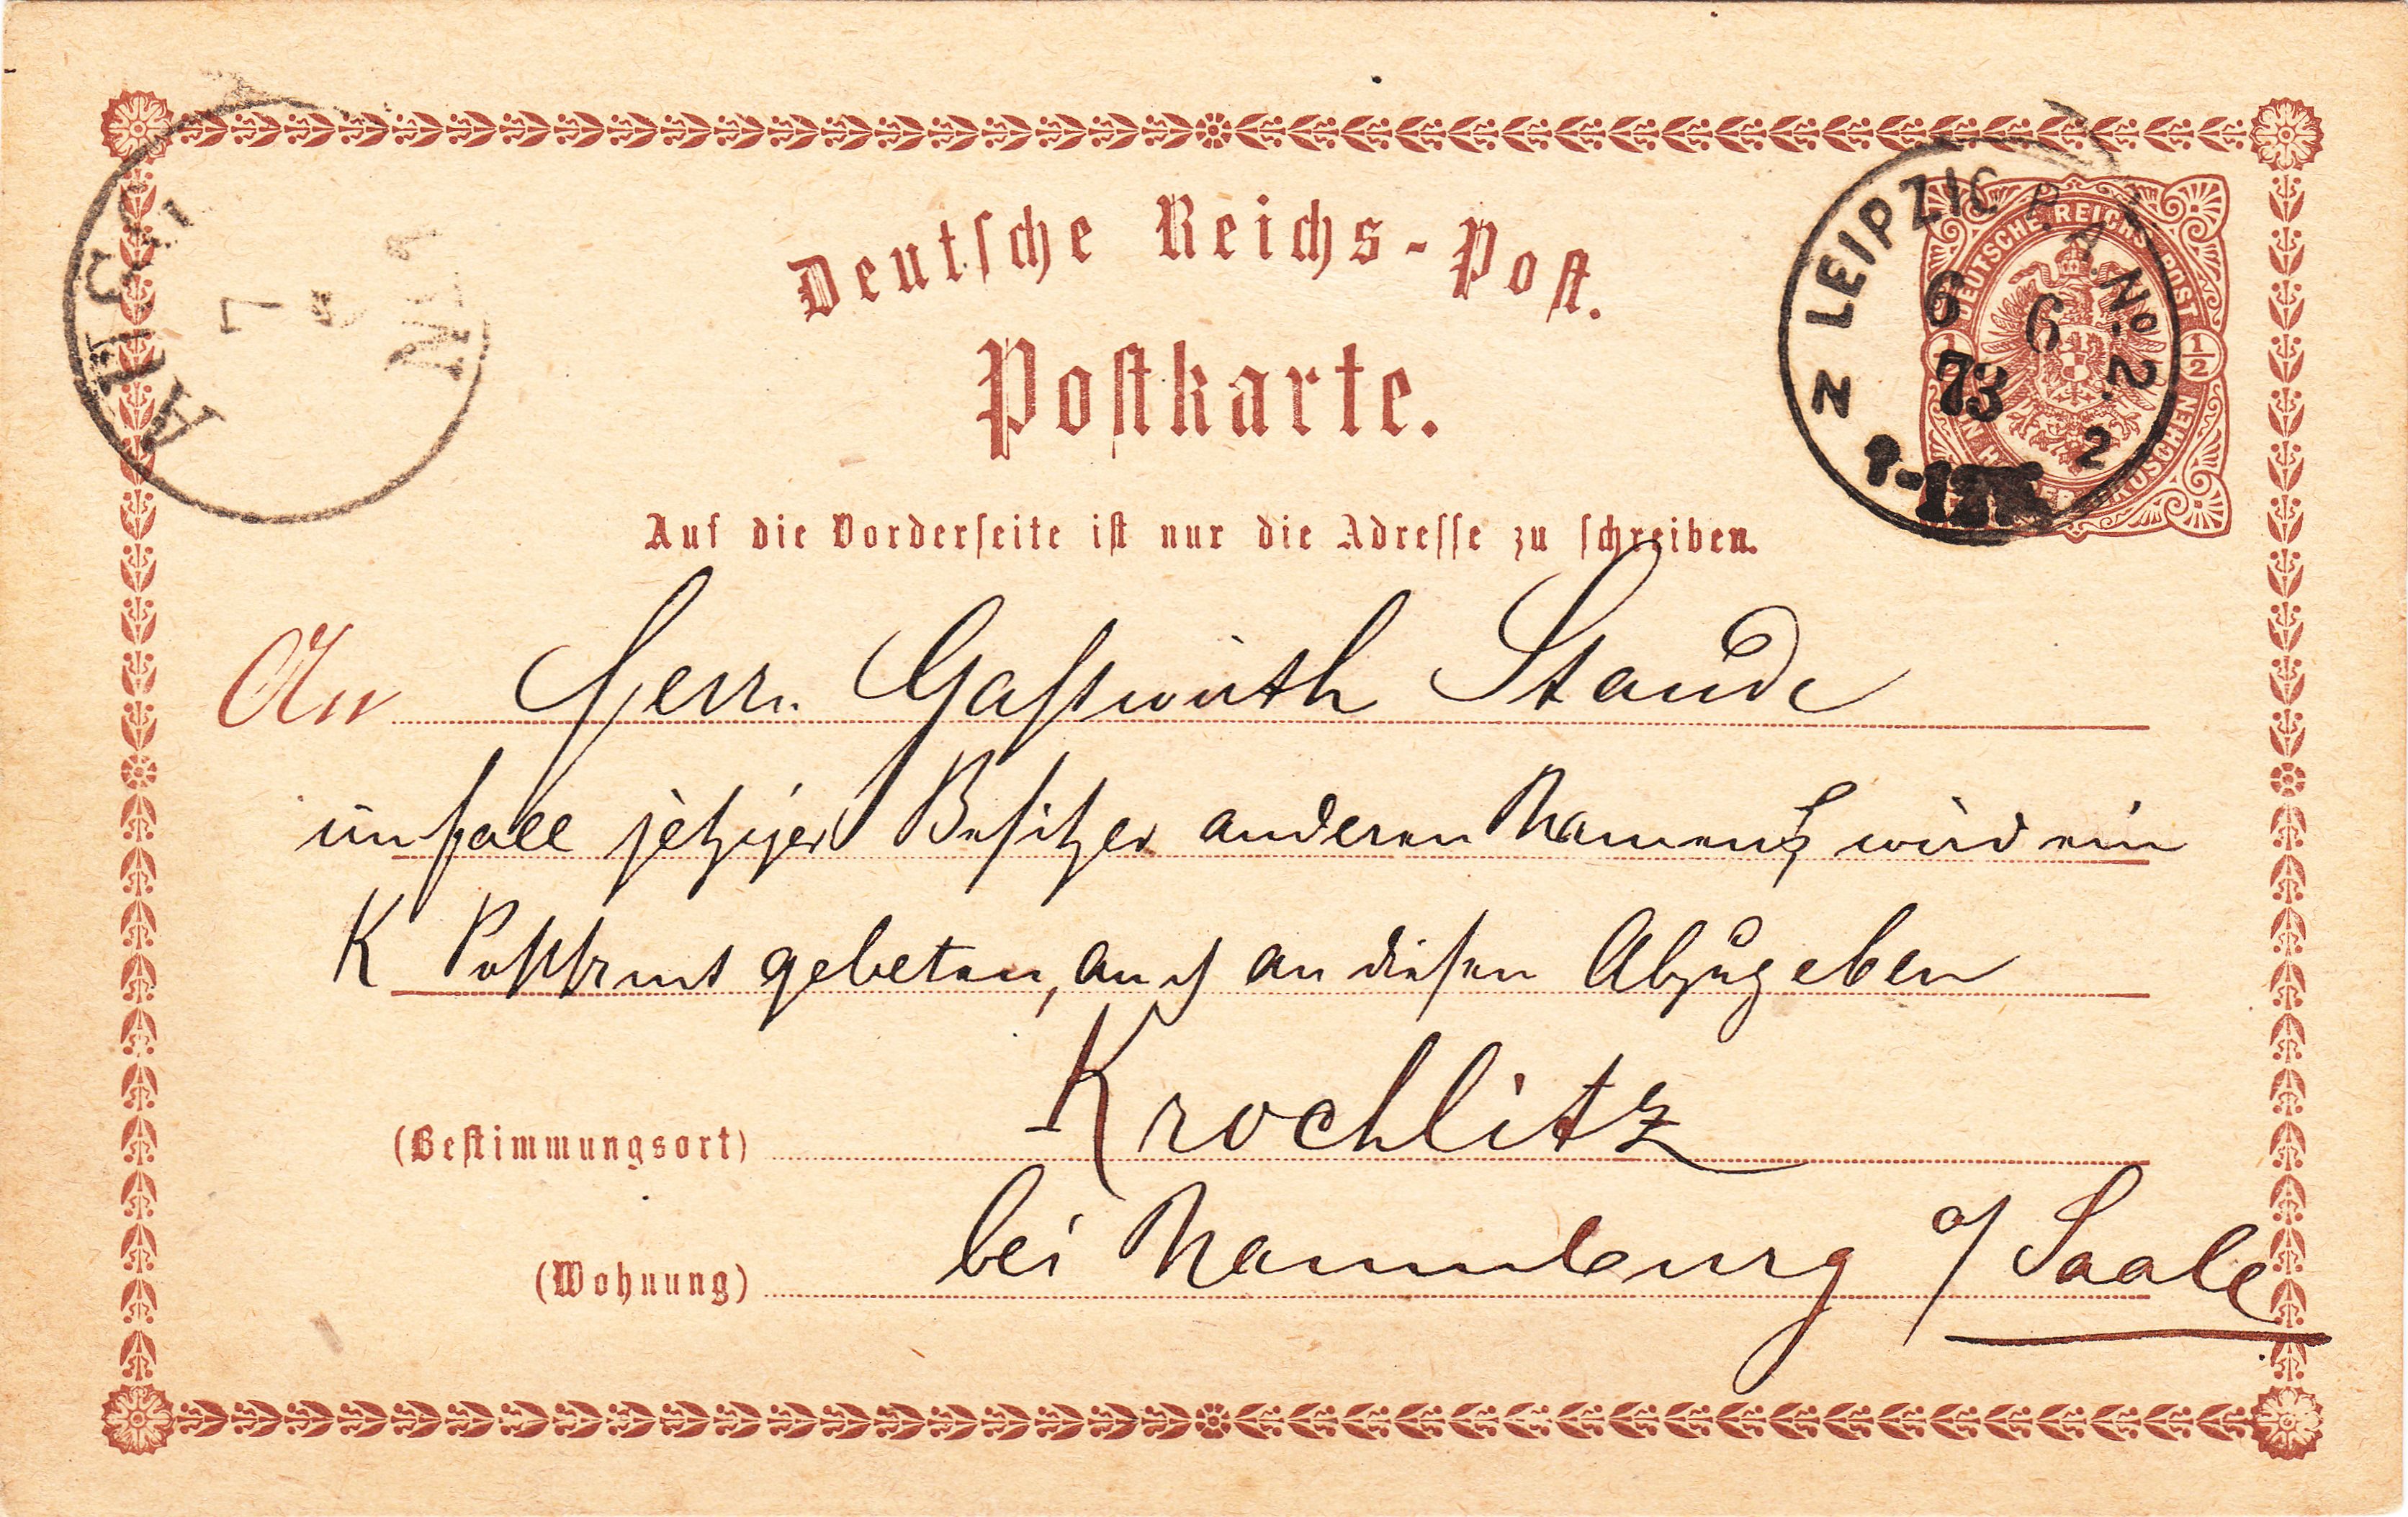 Deutsche Reichs-Post.
Postkarte.
LEIPZIG P.A. No. 2.
6 6
73
N
2
DEUTSCHE REICHS-POST
1/2
AUSG
7
N 1
Auf die Vorderseite ist nur die Adresse zu schreiben.
An Herrn Gastwirth Staude
im falle jetziger Besitzer anderen Namens wird ein
K Postamt gebeten, auch an diesen Abzugeben
(Bestimmungsort) Krochlitz
(Wohnung) bei Naumburg a/ Saale